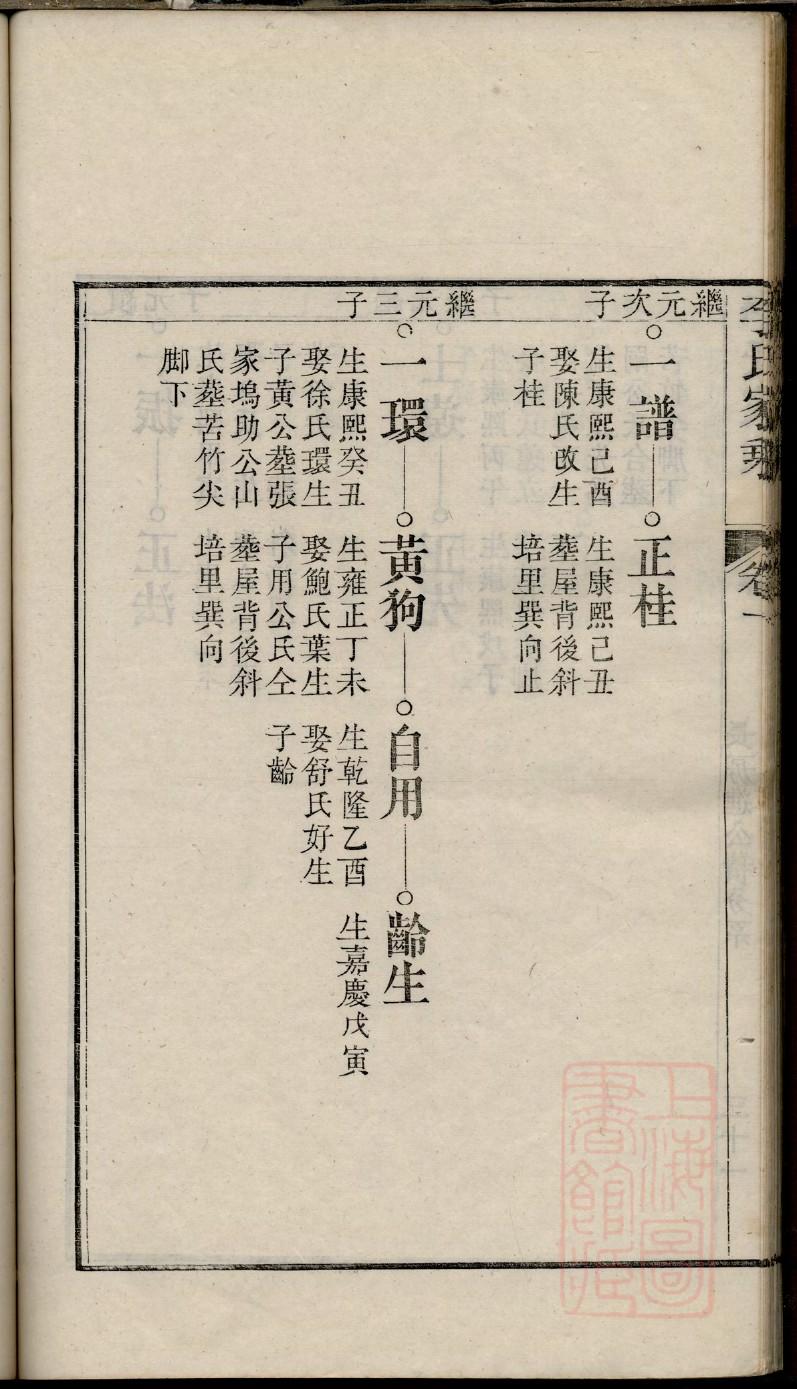 李氏家乘
卷一
繼元次子
一譜
生康熙己酉
娶陳氏改生
子桂
正桂
生康熙己丑
塟屋背後斜
培里巽向止
繼元三子
一環
生康熙癸丑
娶徐氏環生
子黃公塟張
家塢助公山
氏塟苦竹尖
脚下
黃狗
生雍正丁未
娶鮑氏葉生
子用公氏仝
塟屋背後斜
培里巽向
自用
生乾隆乙酉
娶舒氏好生
子齡
齡生
生嘉慶戊寅
上海圖
書館藏